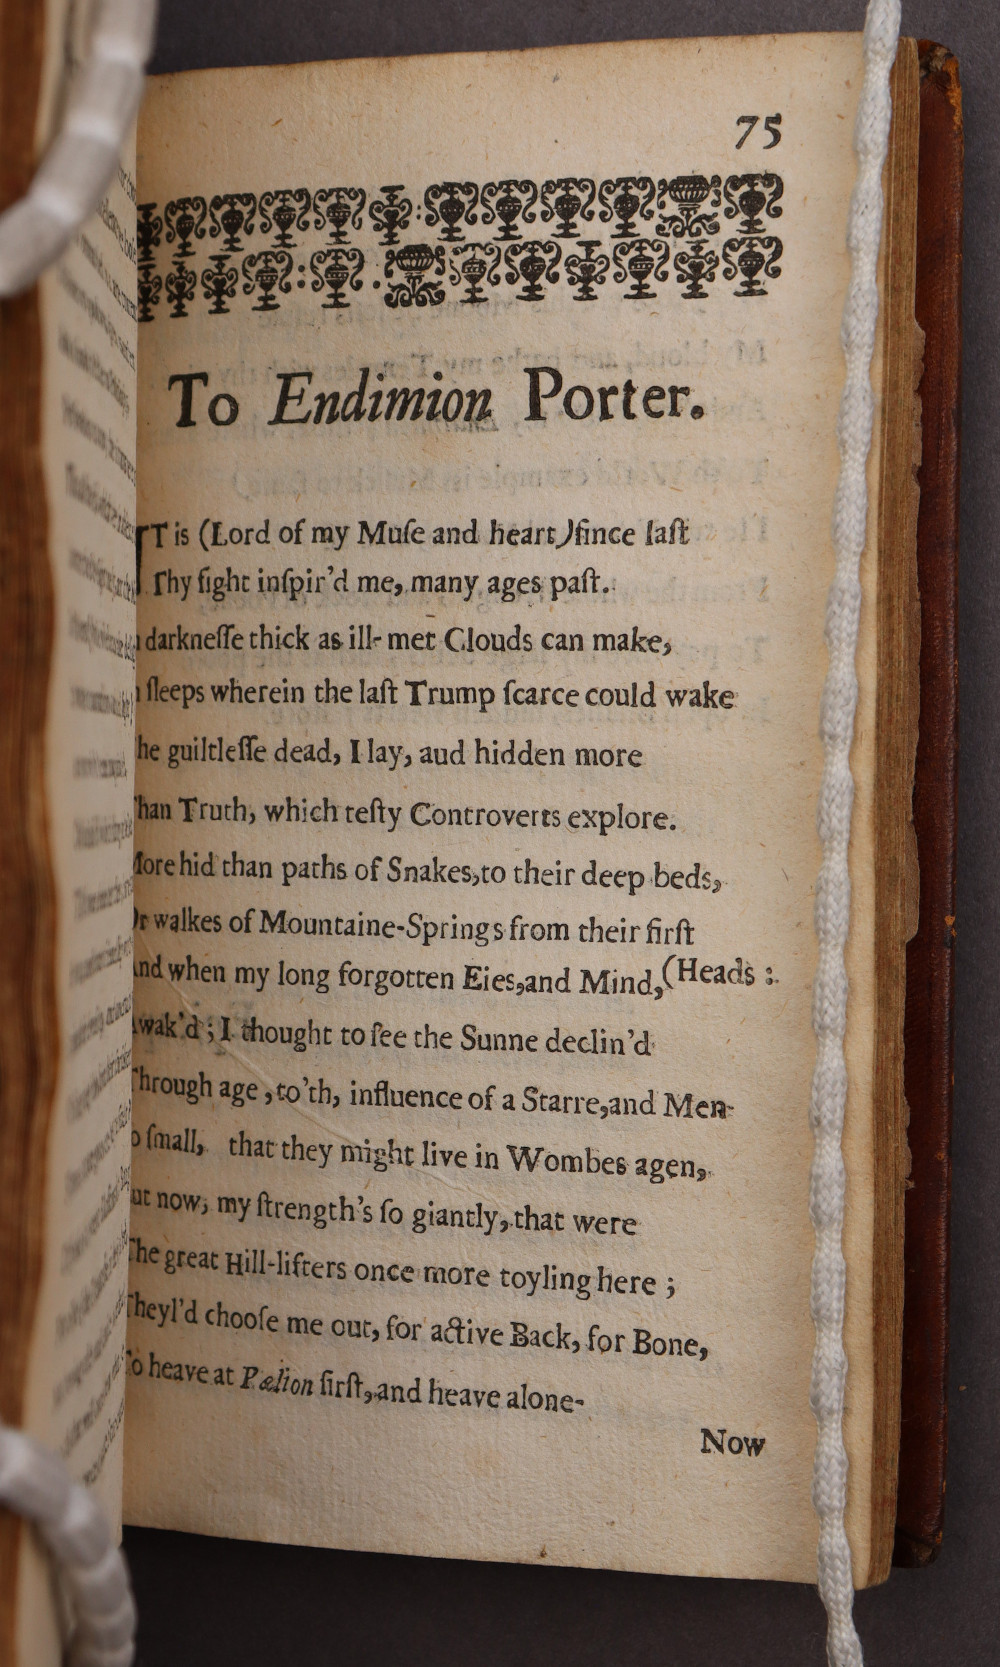 75
To Endimion Porter.
IT is (Lord of my Muſe and heart)ſince laſt
Thy ſight inſpir’d me, many ages paſt.
darkneſſe thick as ill- met Clouds can make,
ſleeps wherein the laſt Trump ſcarce could wake
he guiltleſſe dead, I lay, aud hidden more
han Truth, which teſty Controverts explore.
More hid than paths of Snakes,to their deep beds,
Or walkes of Mountaine-Springs from their firſt
(Heads :
And when my long forgotten Eies,and Mind,
Awak’d ; I thought to ſee the Sunne declin’d
Through age ,to’th, influence of a Starre,and Men-
o ſmall, that they might live in Wombes agen,
ut now, my ſtrength’s ſo giantly,that were
The great Hill-lifters once more toyling here ;
Theyl’d chooſe me out, for active Back, for Bone,
To heave at Pælion firſt,and heave alone-
Now